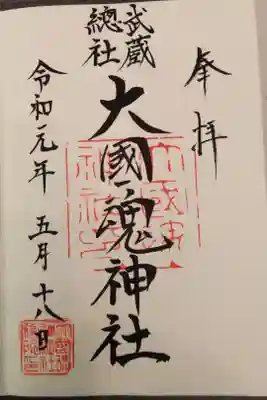 奉拝
武蔵
總社
大國魂神社
令和元年五月十八日